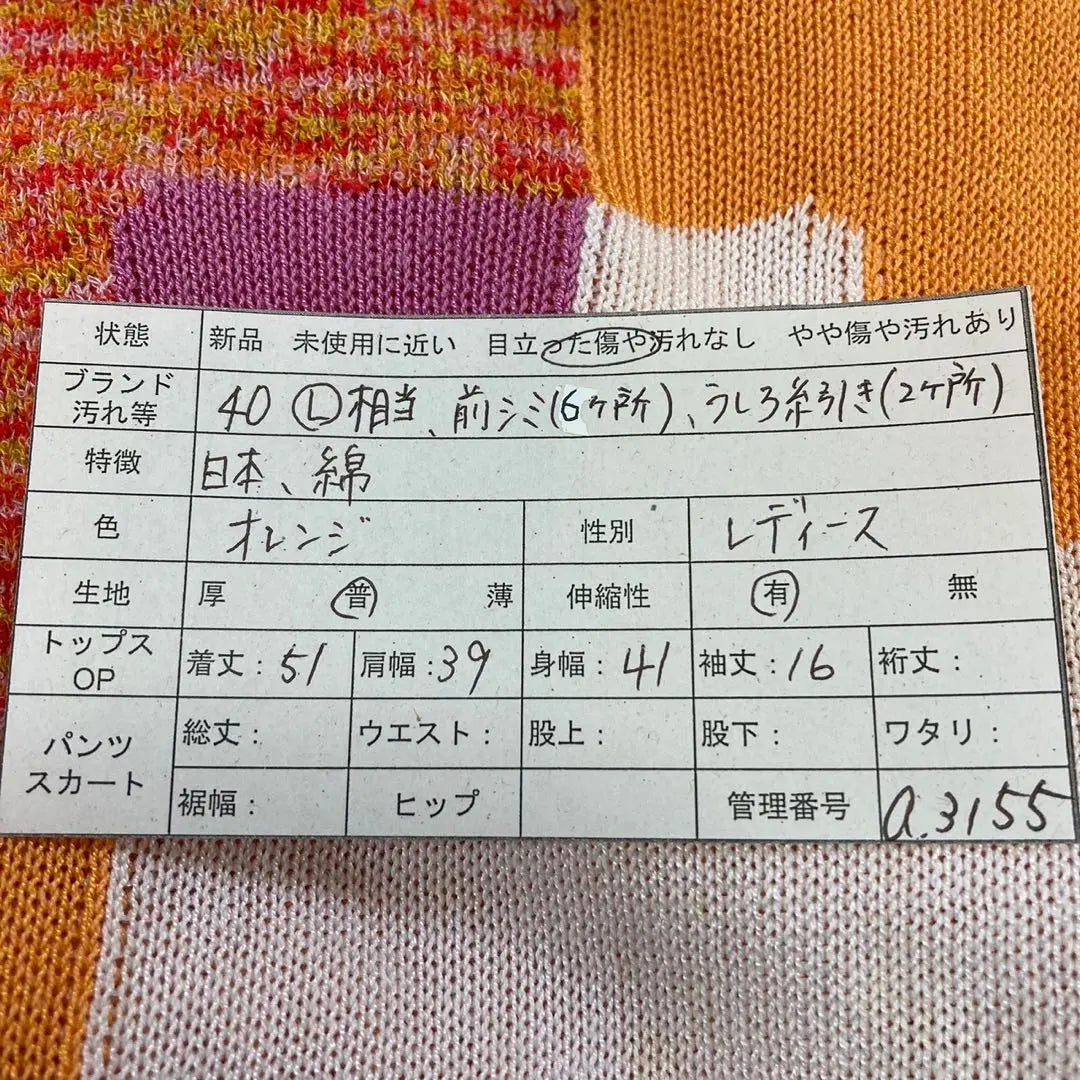 状態 新品 未使用に近い 目立った傷や汚れなし やや傷や汚れあり
ブランド
汚れ等 40 Ⓛ相当、前シミ(6ヶ所)、うしろ糸引き(2ヶ所)
特徴 日本、綿
色 オレンジ 性別 レディース
生地 厚 普 薄 伸縮性 有 無
トップス
OP 着丈:51 肩幅:39 身幅:41 袖丈:16 裄丈:
パンツ
スカート 総丈: ウエスト: 股上: 股下: ワタリ:
裾幅: ヒップ 管理番号 a.3155